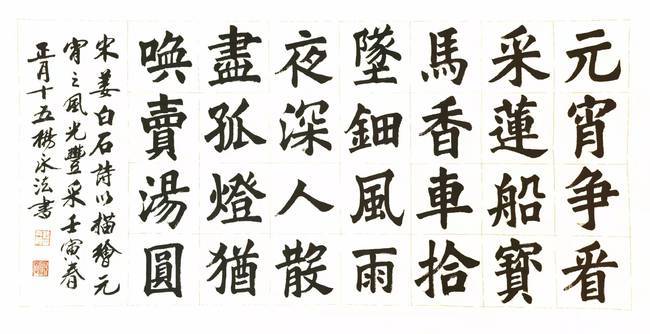 元宵争看
采蓮船寶
馬香車拾
墜鈿風雨
夜深人散
盡孤燈猶
喚賣湯圓
宋姜白石詩以描繪元
宵之風光豐采壬寅春
正月十五楊永法書